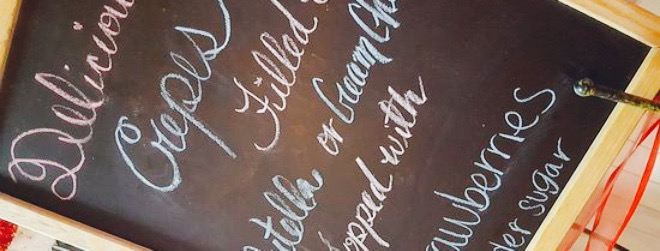 Delicious
Crepes
Filled
Nutella or Cream Ch
Topped with
Strawberries
der sugar